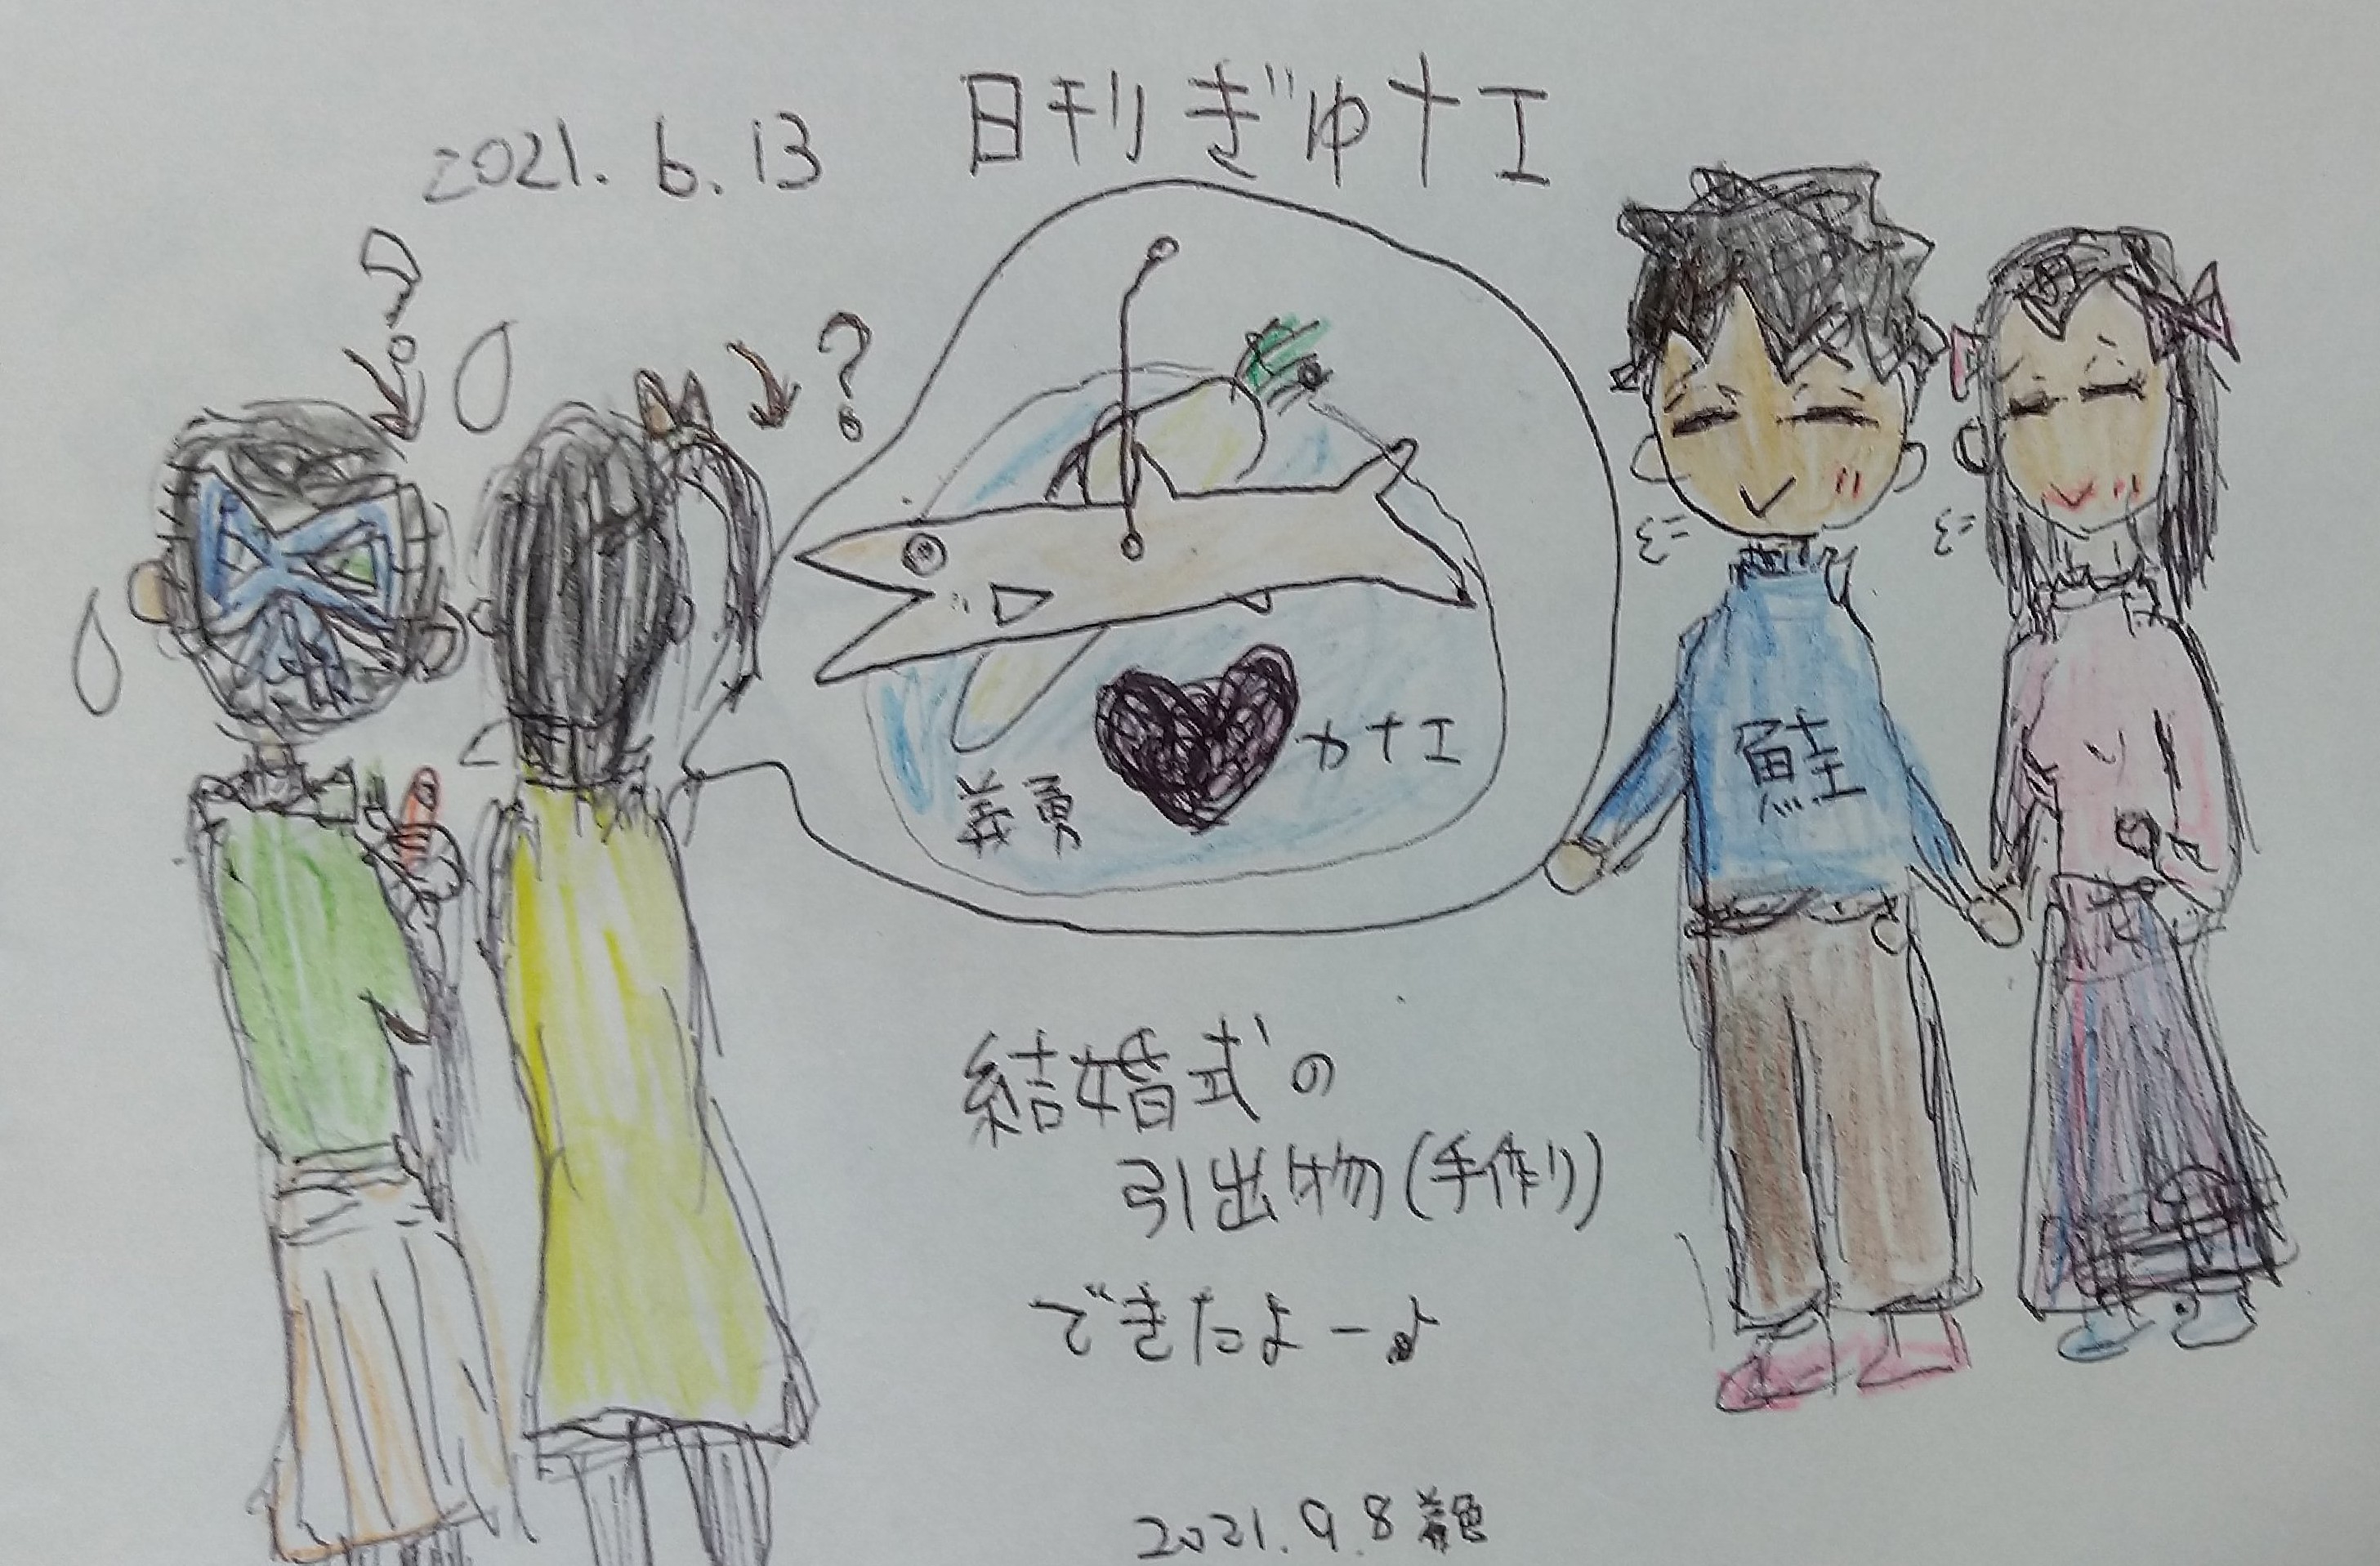 2021.6.13
日刊ぎゆナエ
?
?
義勇
カナエ
鮭
結婚式の
引出物(手作り)
できたよー♪
2021.9.8 着色